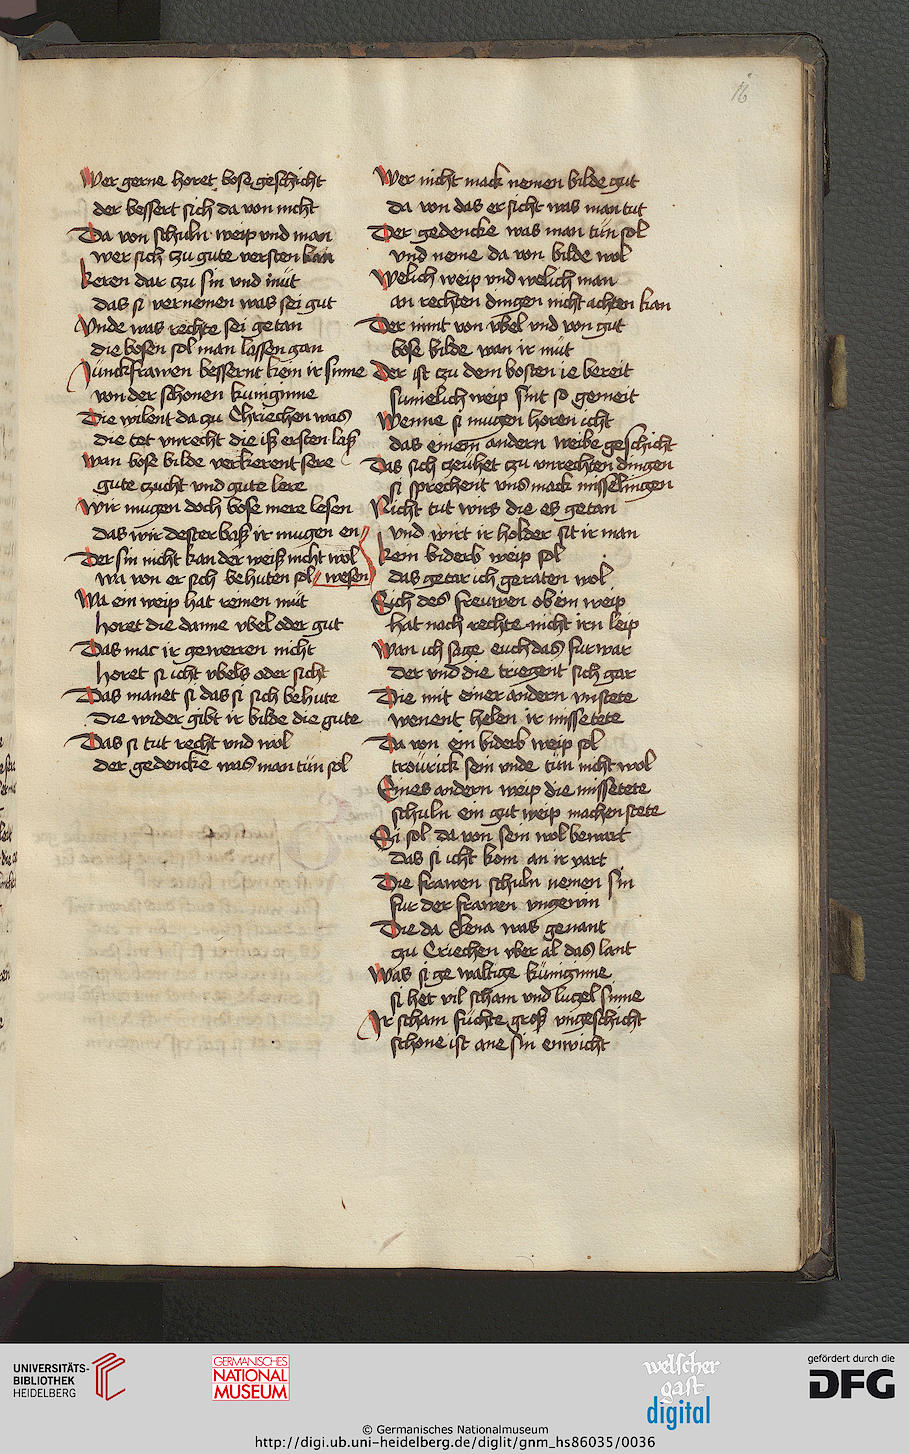 16
Wer gerne horet bose geschicht
der bessert sich da von nicht
Da von schuln weip vnd man
wer sich czu gute versten kan
keren dar czu sin vnd müt
das si vernemen was sei gut
Vnde was rechte sei getan
die bosen sol man lassen gan
Junckfrawen bessernt kem ir sinne
von der schonen kuniginne
Die wilent da czu Chriechen was
die tet vnrecht die iß ersten laß
wan bose bilde verkerent sere
gute czucht vnd gute lere
Wir mugen doch bose mere lesen
das wir dester baß ir mugen en
Der sin nicht kan der weiß nicht wol
wa von er sich behuten sol wesen
Wa ein weip hat reinen müt
horet die danne vbel oder gut
Das mac ir gewerren nicht
horet si icht vbels oder sicht
Das manet si das si sich behute
Die wider gibt ir bilde die gute
Das si tut recht vnd wol
der gedencke was man tün sol
Wer nicht mack nemen bilde gut
da von das er sicht was man tut
Der gedencke was man tün sol
vnd neme da von bilde wol
Welich weip vnd welich man
an rechten dingen nicht achten kan
Der nimt von vbel vnd von gut
bose bilde wan ir müt
Der ist czu dem bosten ie bereit
sumelich weip sint so gemeit
Wenne si mugen horen icht
das einem andern weibe geschicht
Das sich czeuhet czu vnrechten dingen
si sprechent vns mack misselingen
Nicht tut wirs die es getan
vnd wirt ir holder sit ir man
kein biderb weip sol
das getar ich geraten wol
Sich des freuwen ob ein weip
hat nach rechte nicht irn leip
Wan ich sage euch das fur war
der vnd die triegent sich gar
Die mit einer andern vnstete
wenent helen ir missetete
Da von ein biderb weip sol
trourick sein vnde tün nicht wol
Eines andern weip die missetete
schuln ein gut weip machen stete
Si sol da von sein wol bewart
das si icht kom an ir vart
Die frawen schuln nemen sin
fur der frawen vngewin
Die da Elena was genant
czu Criechen vber al das lant
Was si ge waltige küniginne
si het vil scham vnd lüczel sinne
Ir scham füchte groß vngeschicht
schone ist ane sin enwicht
UNIVERSITÄTS-
BIBLIOTHEK
HEIDELBERG
GERMANISCHES
NATIONAL
MUSEUM
welscher
gast
digital
gefördert durch die
DFG
© Germanisches Nationalmuseum
http://digi.ub.uni-heidelberg.de/diglit/gnm_hs86035/0036